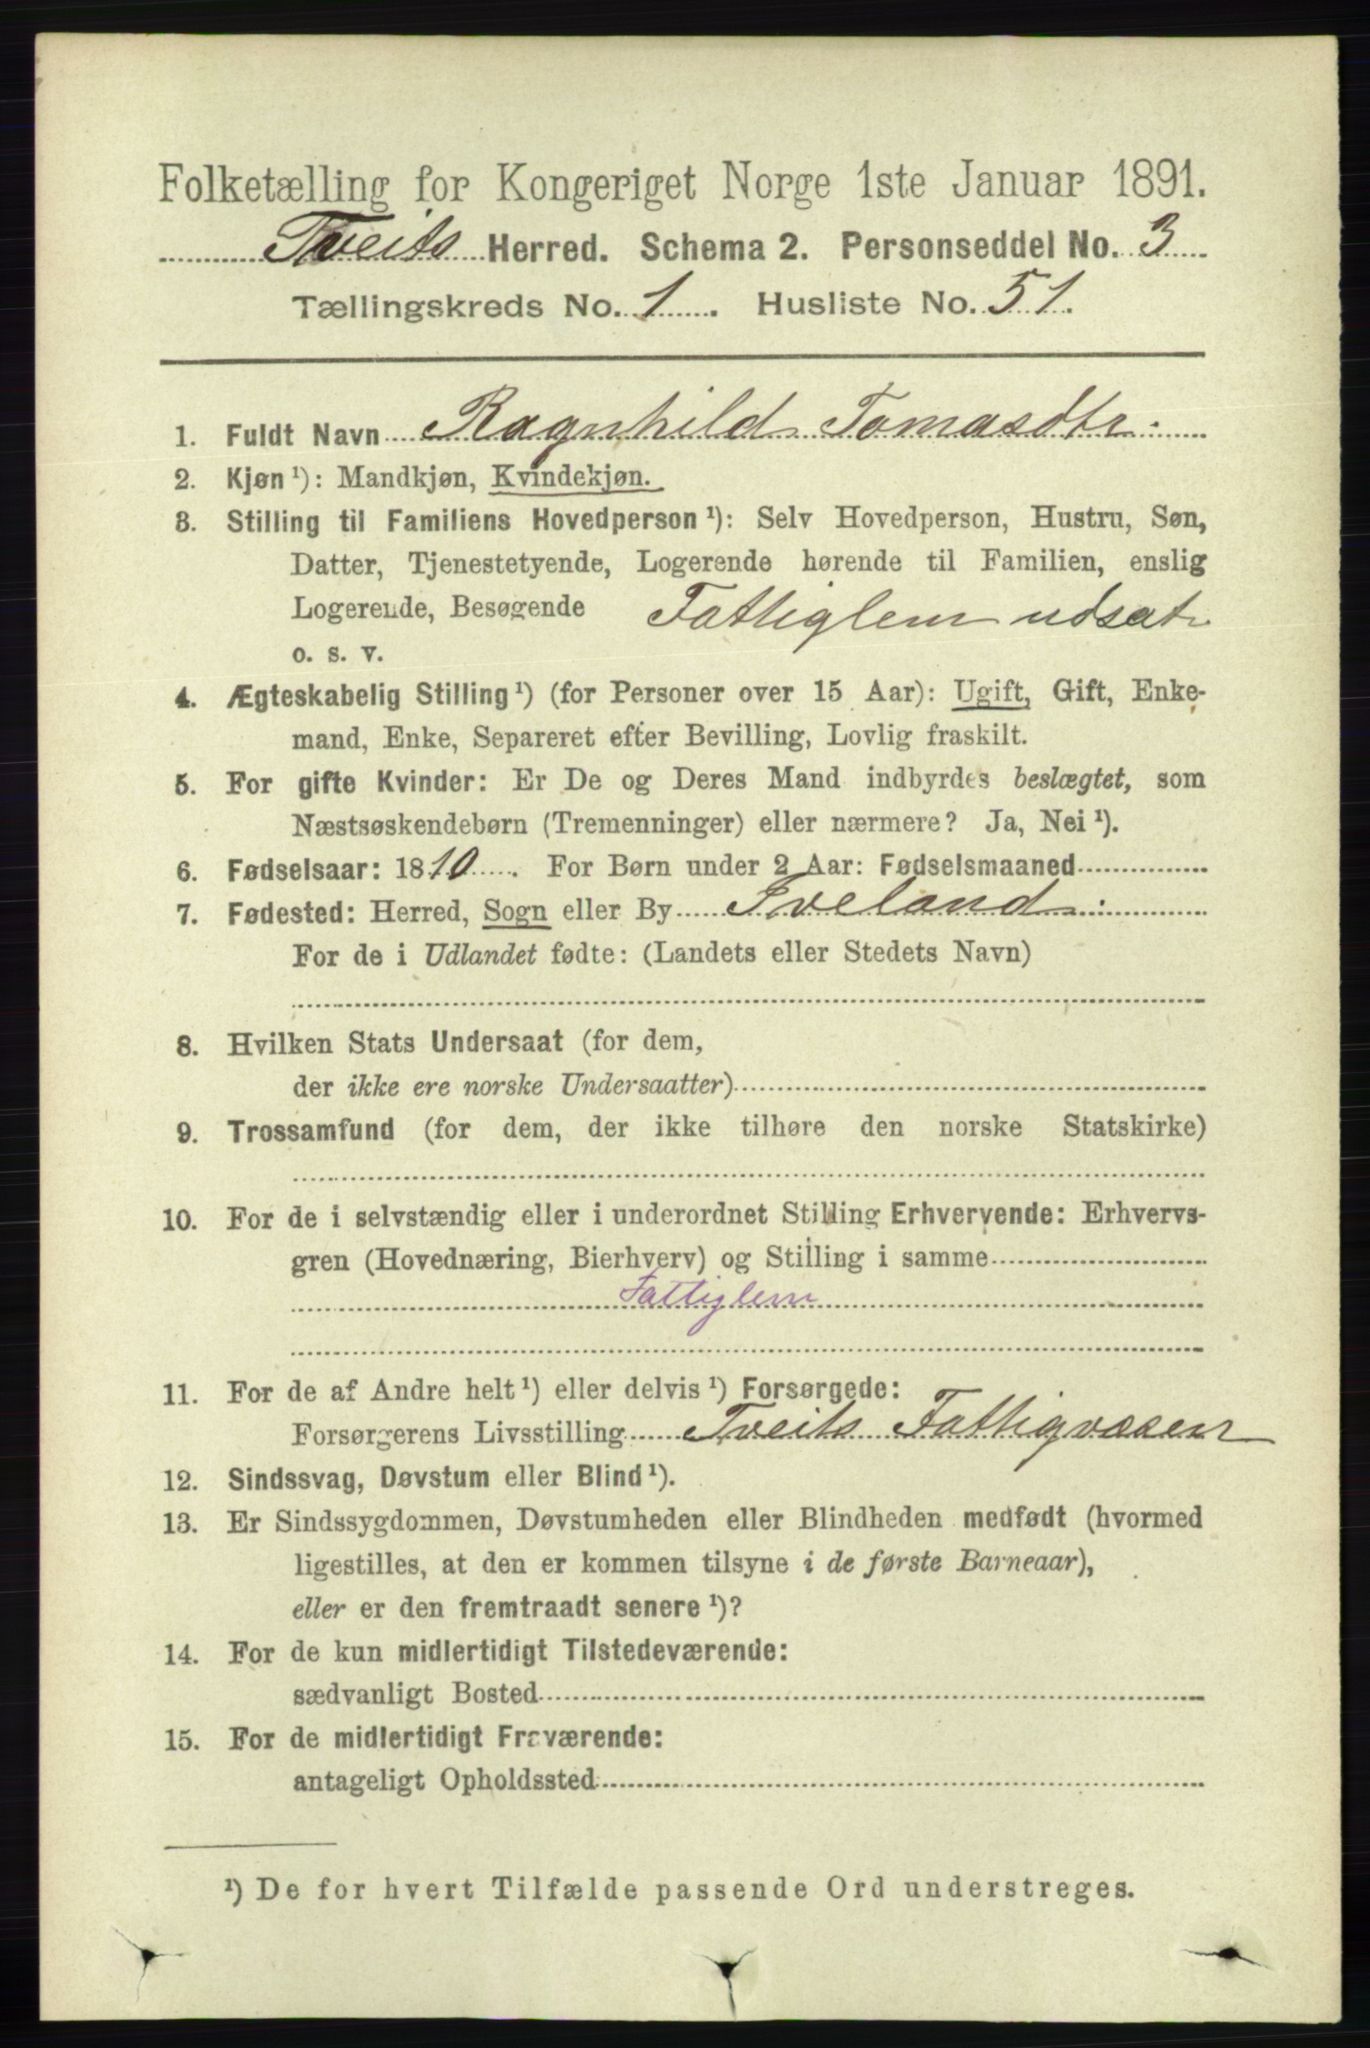 Folketælling for Kongeriget Norge 1ste Januar 1891.
Tveits Herred. Schema 2. Personseddel No. 3
Tællingskreds No. 1. Husliste No. 51.
1. Fuldt Navn Ragnhild Tomasdtr.
2. Kjøn ¹): Mandkjøn, Kvindekjøn.
3. Stilling til Familiens Hovedperson ¹): Selv Hovedperson, Hustru, Søn,
Datter, Tjenestetyende, Logerende hørende til Familien, enslig
Logerende, Besøgende Fattiglem udsat
o. s. v.
4. Ægteskabelig Stilling ¹) (for Personer over 15 Aar): Ugift, Gift, Enke-
mand, Enke, Separeret efter Bevilling, Lovlig fraskilt.
5. For gifte Kvinder: Er De og Deres Mand indbyrdes beslægtet, som
Næstsøskendebørn (Tremenninger) eller nærmere? Ja, Nei ¹).
6. Fødselsaar: 1810. For Børn under 2 Aar: Fødselsmaaned
7. Fødested: Herred, Sogn eller By Iveland
For de i Udlandet fødte: (Landets eller Stedets Navn)
8. Hvilken Stats Undersaat (for dem,
der ikke ere norske Undersaatter)
9. Trossamfund (for dem, der ikke tilhøre den norske Statskirke)
10. For de i selvstændig eller i underordnet Stilling Erhvervende: Erhvervs-
gren (Hovednæring, Bierhverv) og Stilling i samme
Fattiglem
11. For de af Andre helt ¹) eller delvis ¹) Forsørgede:
Forsørgerens Livsstilling Tveits Fattigvæsen
12. Sindssvag, Døvstum eller Blind ¹).
13. Er Sindssygdommen, Døvstumheden eller Blindheden medfødt (hvormed
ligestilles, at den er kommen tilsyne i de første Barneaar),
eller er den fremtraadt senere ¹)?
14. For de kun midlertidigt Tilstedeværende:
sædvanligt Bosted
15. For de midlertidigt Fraværende:
antageligt Opholdssted
¹) De for hvert Tilfælde passende Ord understreges.